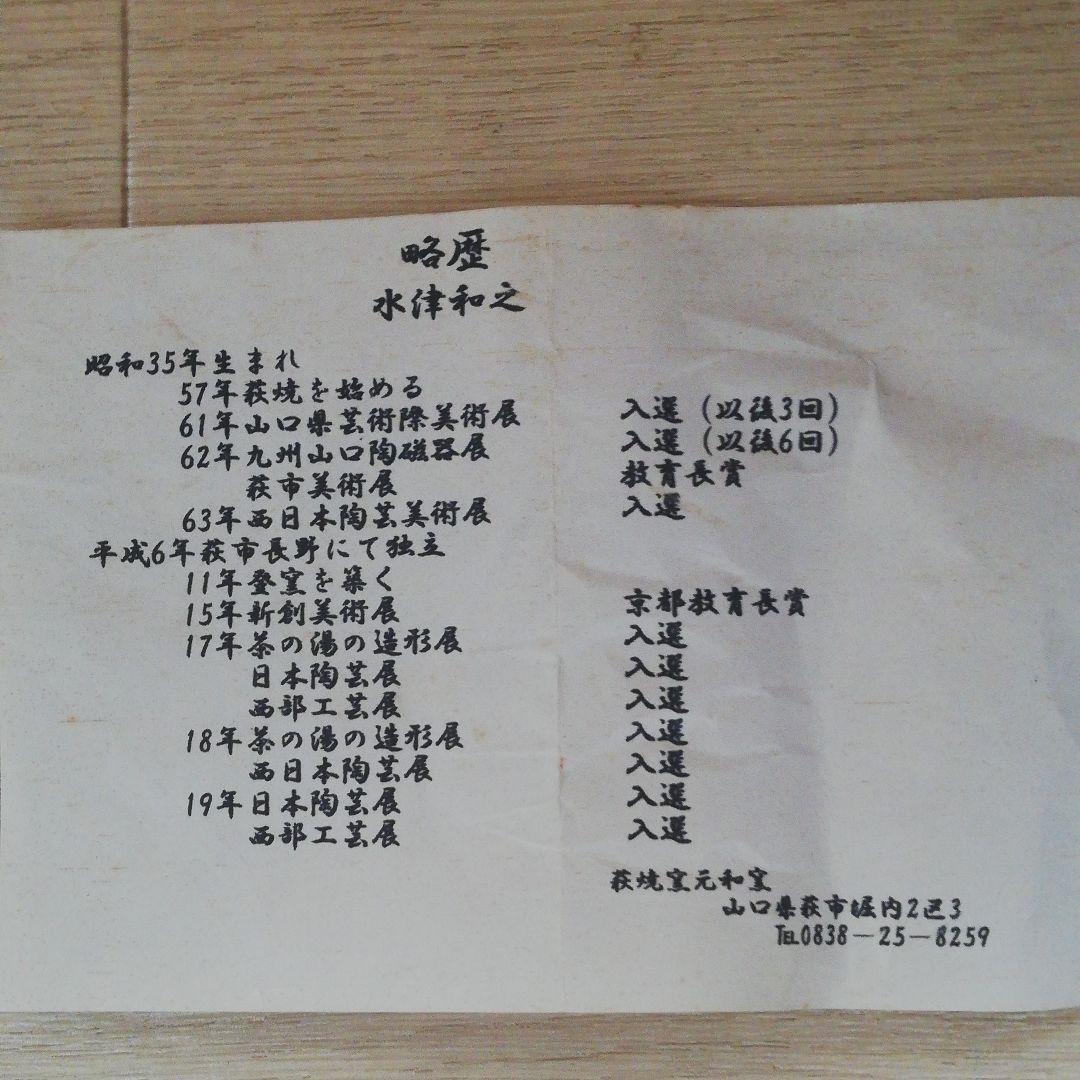 略歴
水津和之
昭和35年生まれ
57年萩焼を始める
61年山口県芸術際美術展 入選（以後3回）
62年九州山口陶磁器展 入選（以後6回）
萩市美術展 教育長賞
63年西日本陶芸美術展 入選
平成6年萩市長野にて独立
11年登窯を築く
15年新創美術展 京都教育長賞
17年茶の湯の造形展 入選
日本陶芸展 入選
西部工芸展 入選
18年茶の湯の造形展 入選
西日本陶芸展 入選
19年日本陶芸展 入選
西部工芸展 入選
萩焼窯元和窯
山口県萩市堀内2区3
℡0838－25－8259